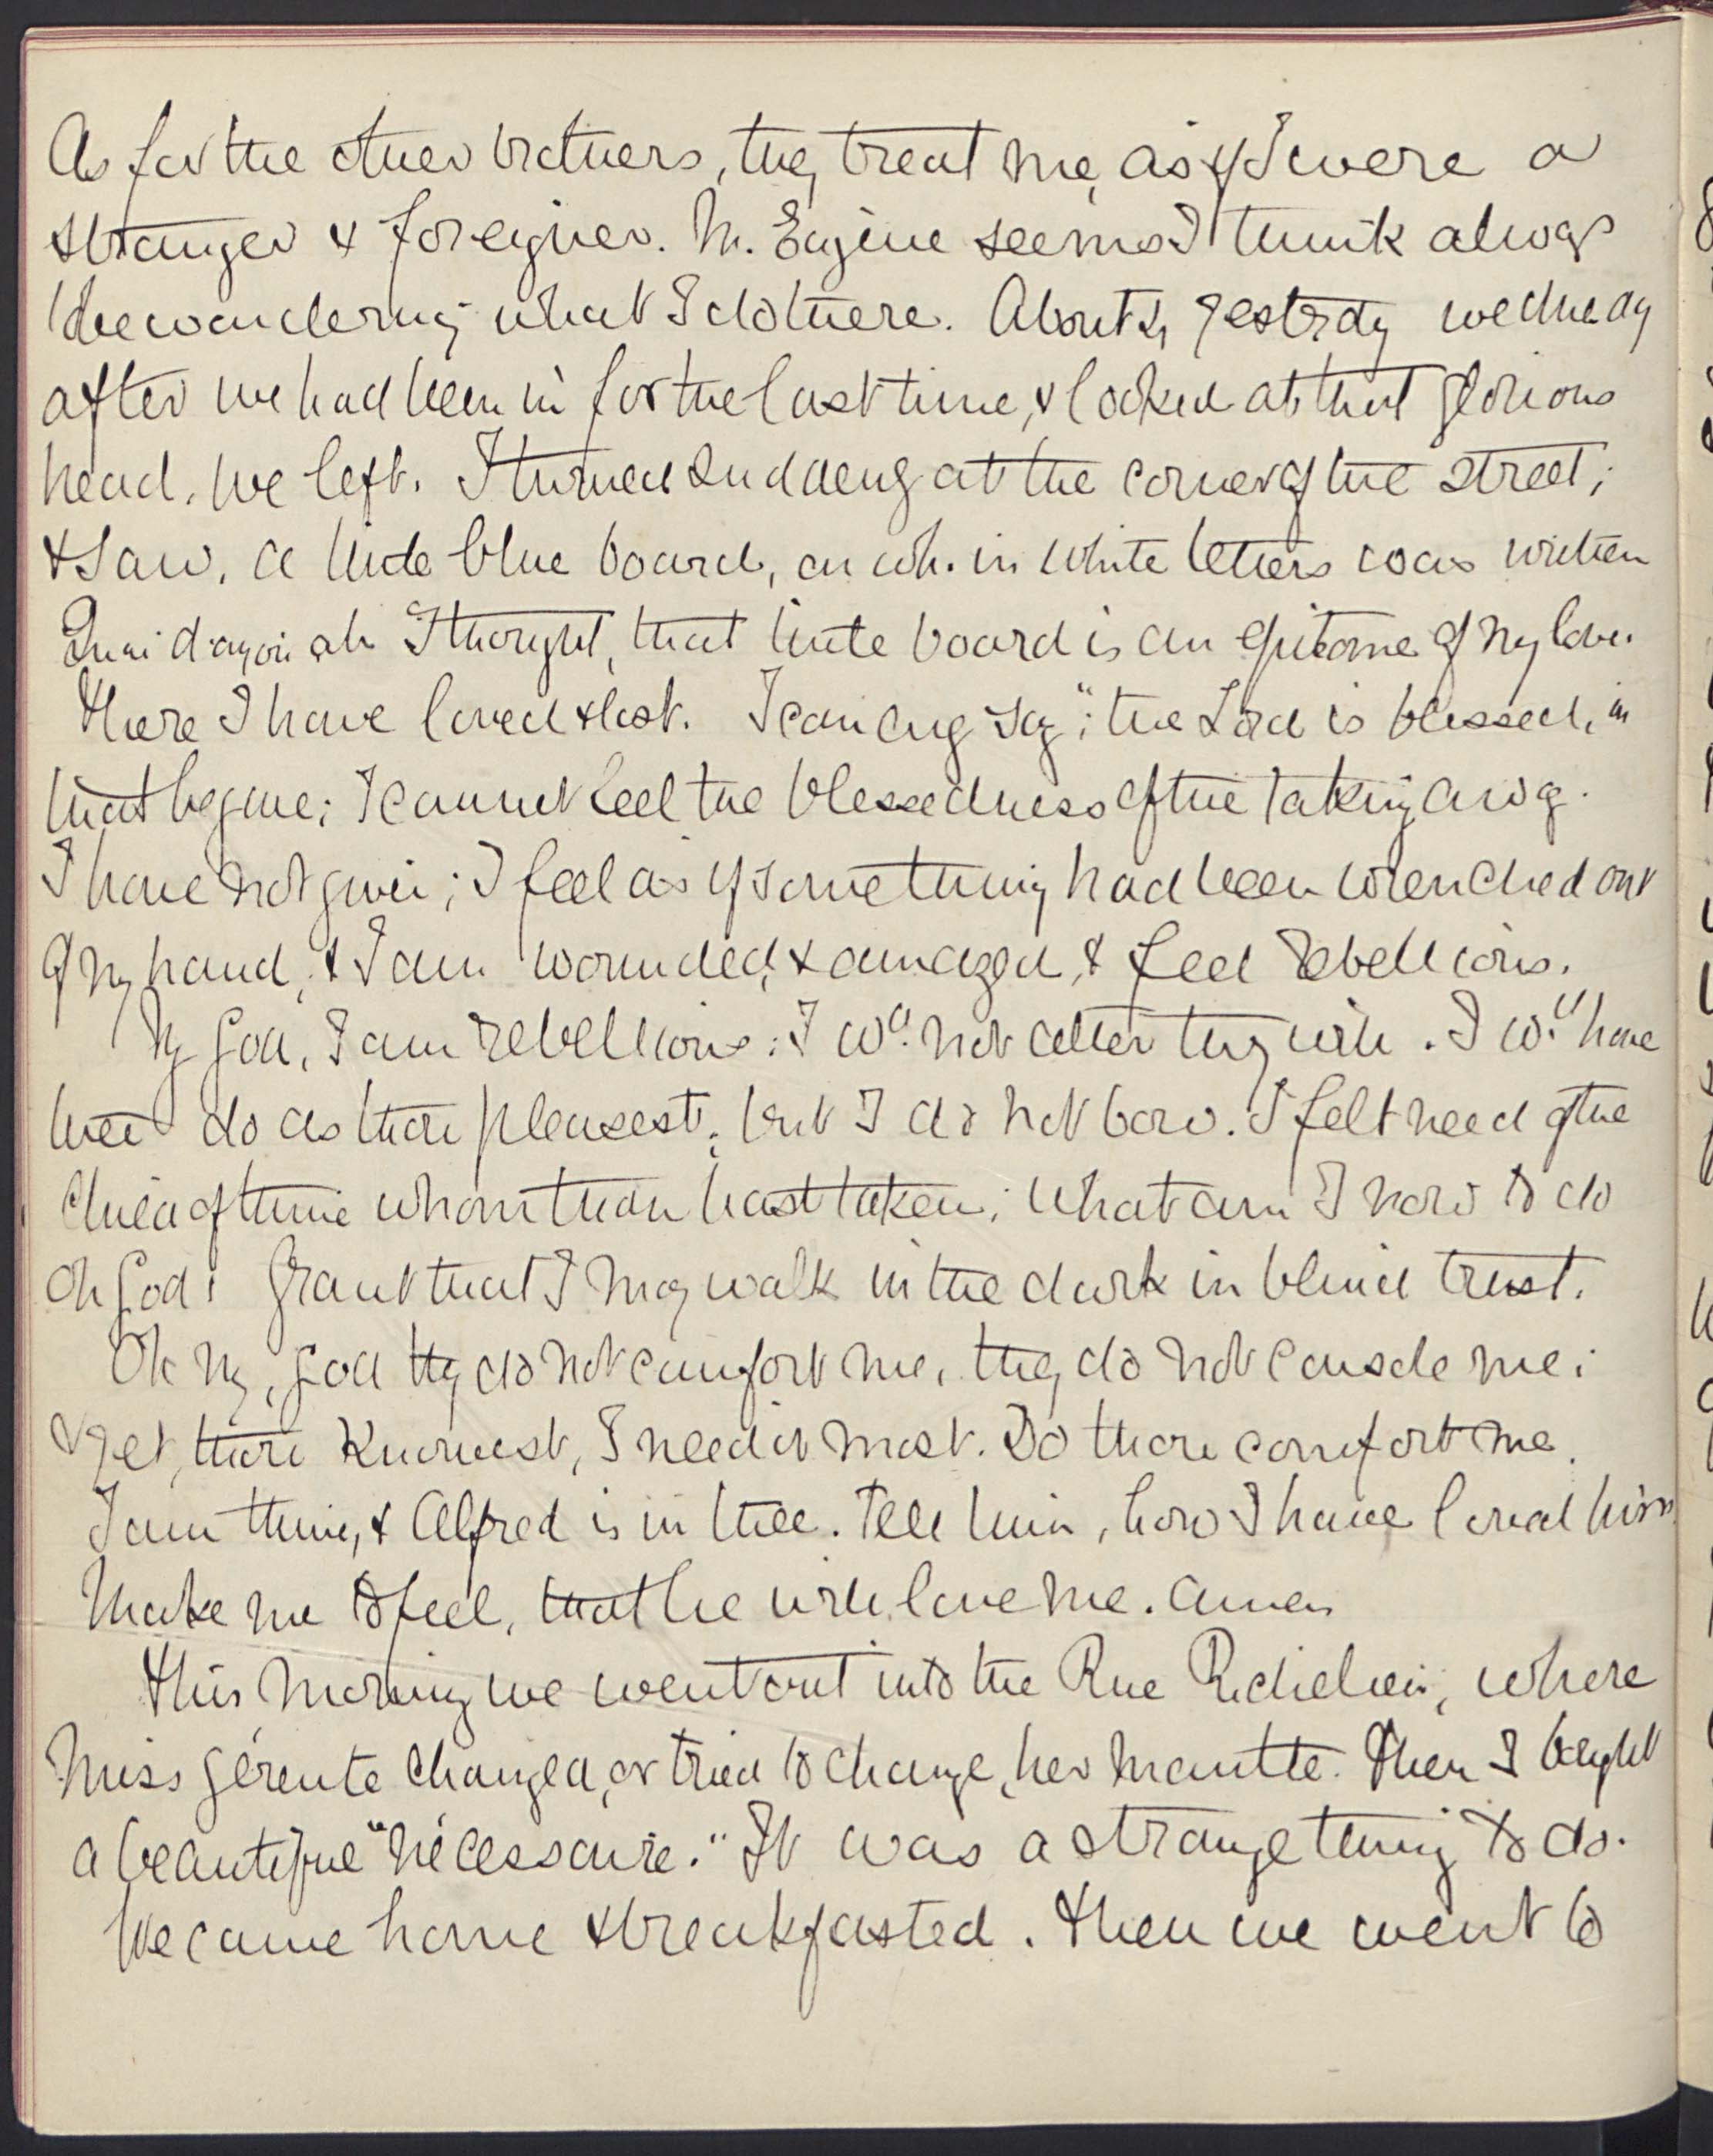 As for the other brothers, they treat me, as if I were a
stranger & foreigner. M. Eugène seems I think always
to be wondering what I do there. About 4, yesterday Wednesday
after we had been in for the last time, & looked at that glorious
head, we left. I turned suddenly at the corner of the street;
& saw, a little blue board, on wh. in white letters was written
Quai d'anjou ah I thought, that little board is an epitome of my love.
There I have loved & lost. I can only say "; the Lord is blessed, in
that he gave; I cannot feel the blessedness of the taking away.
I have not given; I feel as if something had been wrenched out
of my hand, & I am wounded, & amazed, & feel rebellious.
My God, I am rebellious: I wd. not alter thy will. I wd. have
thee do as thou pleasest; but I do not bow. I felt need of the
child of thine whom thou hast taken; what am I now to do
Oh God! Grant that I may walk in the dark in blind trust.
Oh my, God they do not comfort me, they do not console me;
& yet, thou knowest, I need it most. Do thou comfort me.
I am thine, & Alfred is in thee. Tell him, how I have loved him
Make me to feel, that he will love me. Amen
This morning we went out into the Rue Richelieu, where
Miss Gérente changed, or tried to change, her mantle. Then I bought
a beautiful "nécessaire." It was a strange thing to do.
We came home & breakfasted. Then we went to